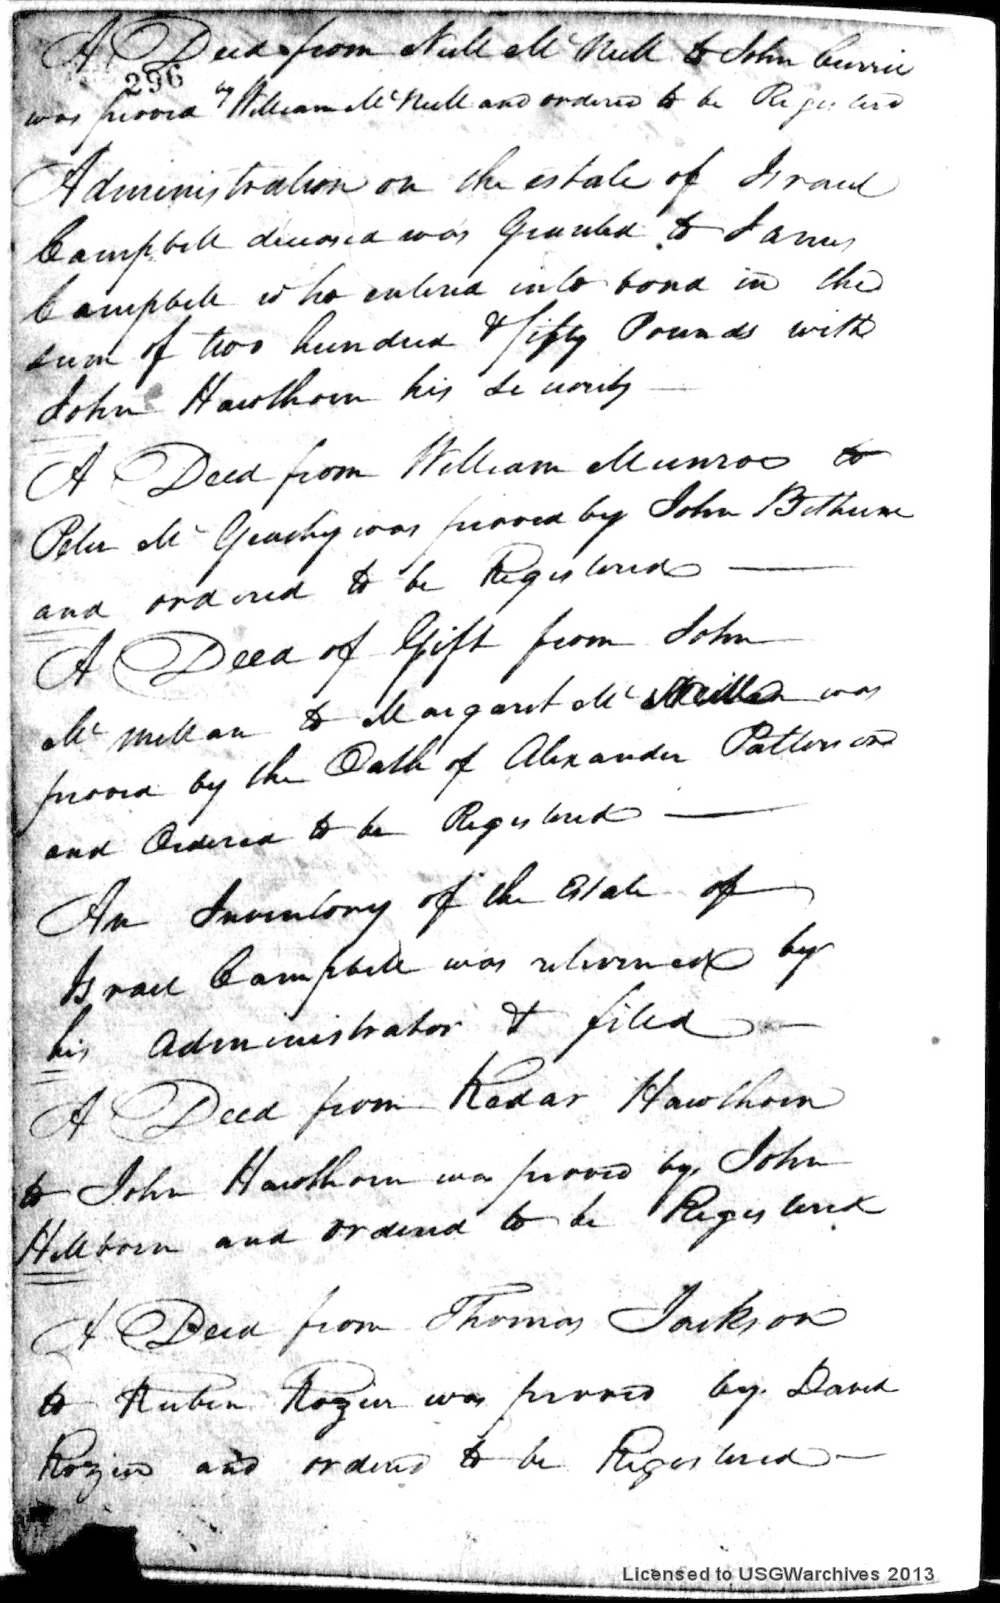 A Deed from Neill Mc Neill to John Currie
296
was proved by William Mc Neill and ordered to be Registered
Administration on the estate of Israel
Campbell deceased was Granted to James
Campbell who entered into bond in the
sum of two hundred & fifty Pounds with
John Hawthorn his Security
A Deed from William Munroe to
Peter Mc Geachy was proved by John Bethune
and ordered to be Registered
A Deed of Gift from John
Mc Millan to Margaret Mc was
proved by the Oath of Alexander Patterson
and Ordered to be Registered
An Inventory of the Estate of
Israel Campbell was returned by
his Administrator & filed
A Deed from Kedar Hawthorn
to John Hawthorn was proved by John
Hillborn and ordered to be Registered
A Deed from Thomas Jackson
to Reuben Rozier was proved by David
Rozier and ordered to be Registered
Licensed to USGWarchives 2013